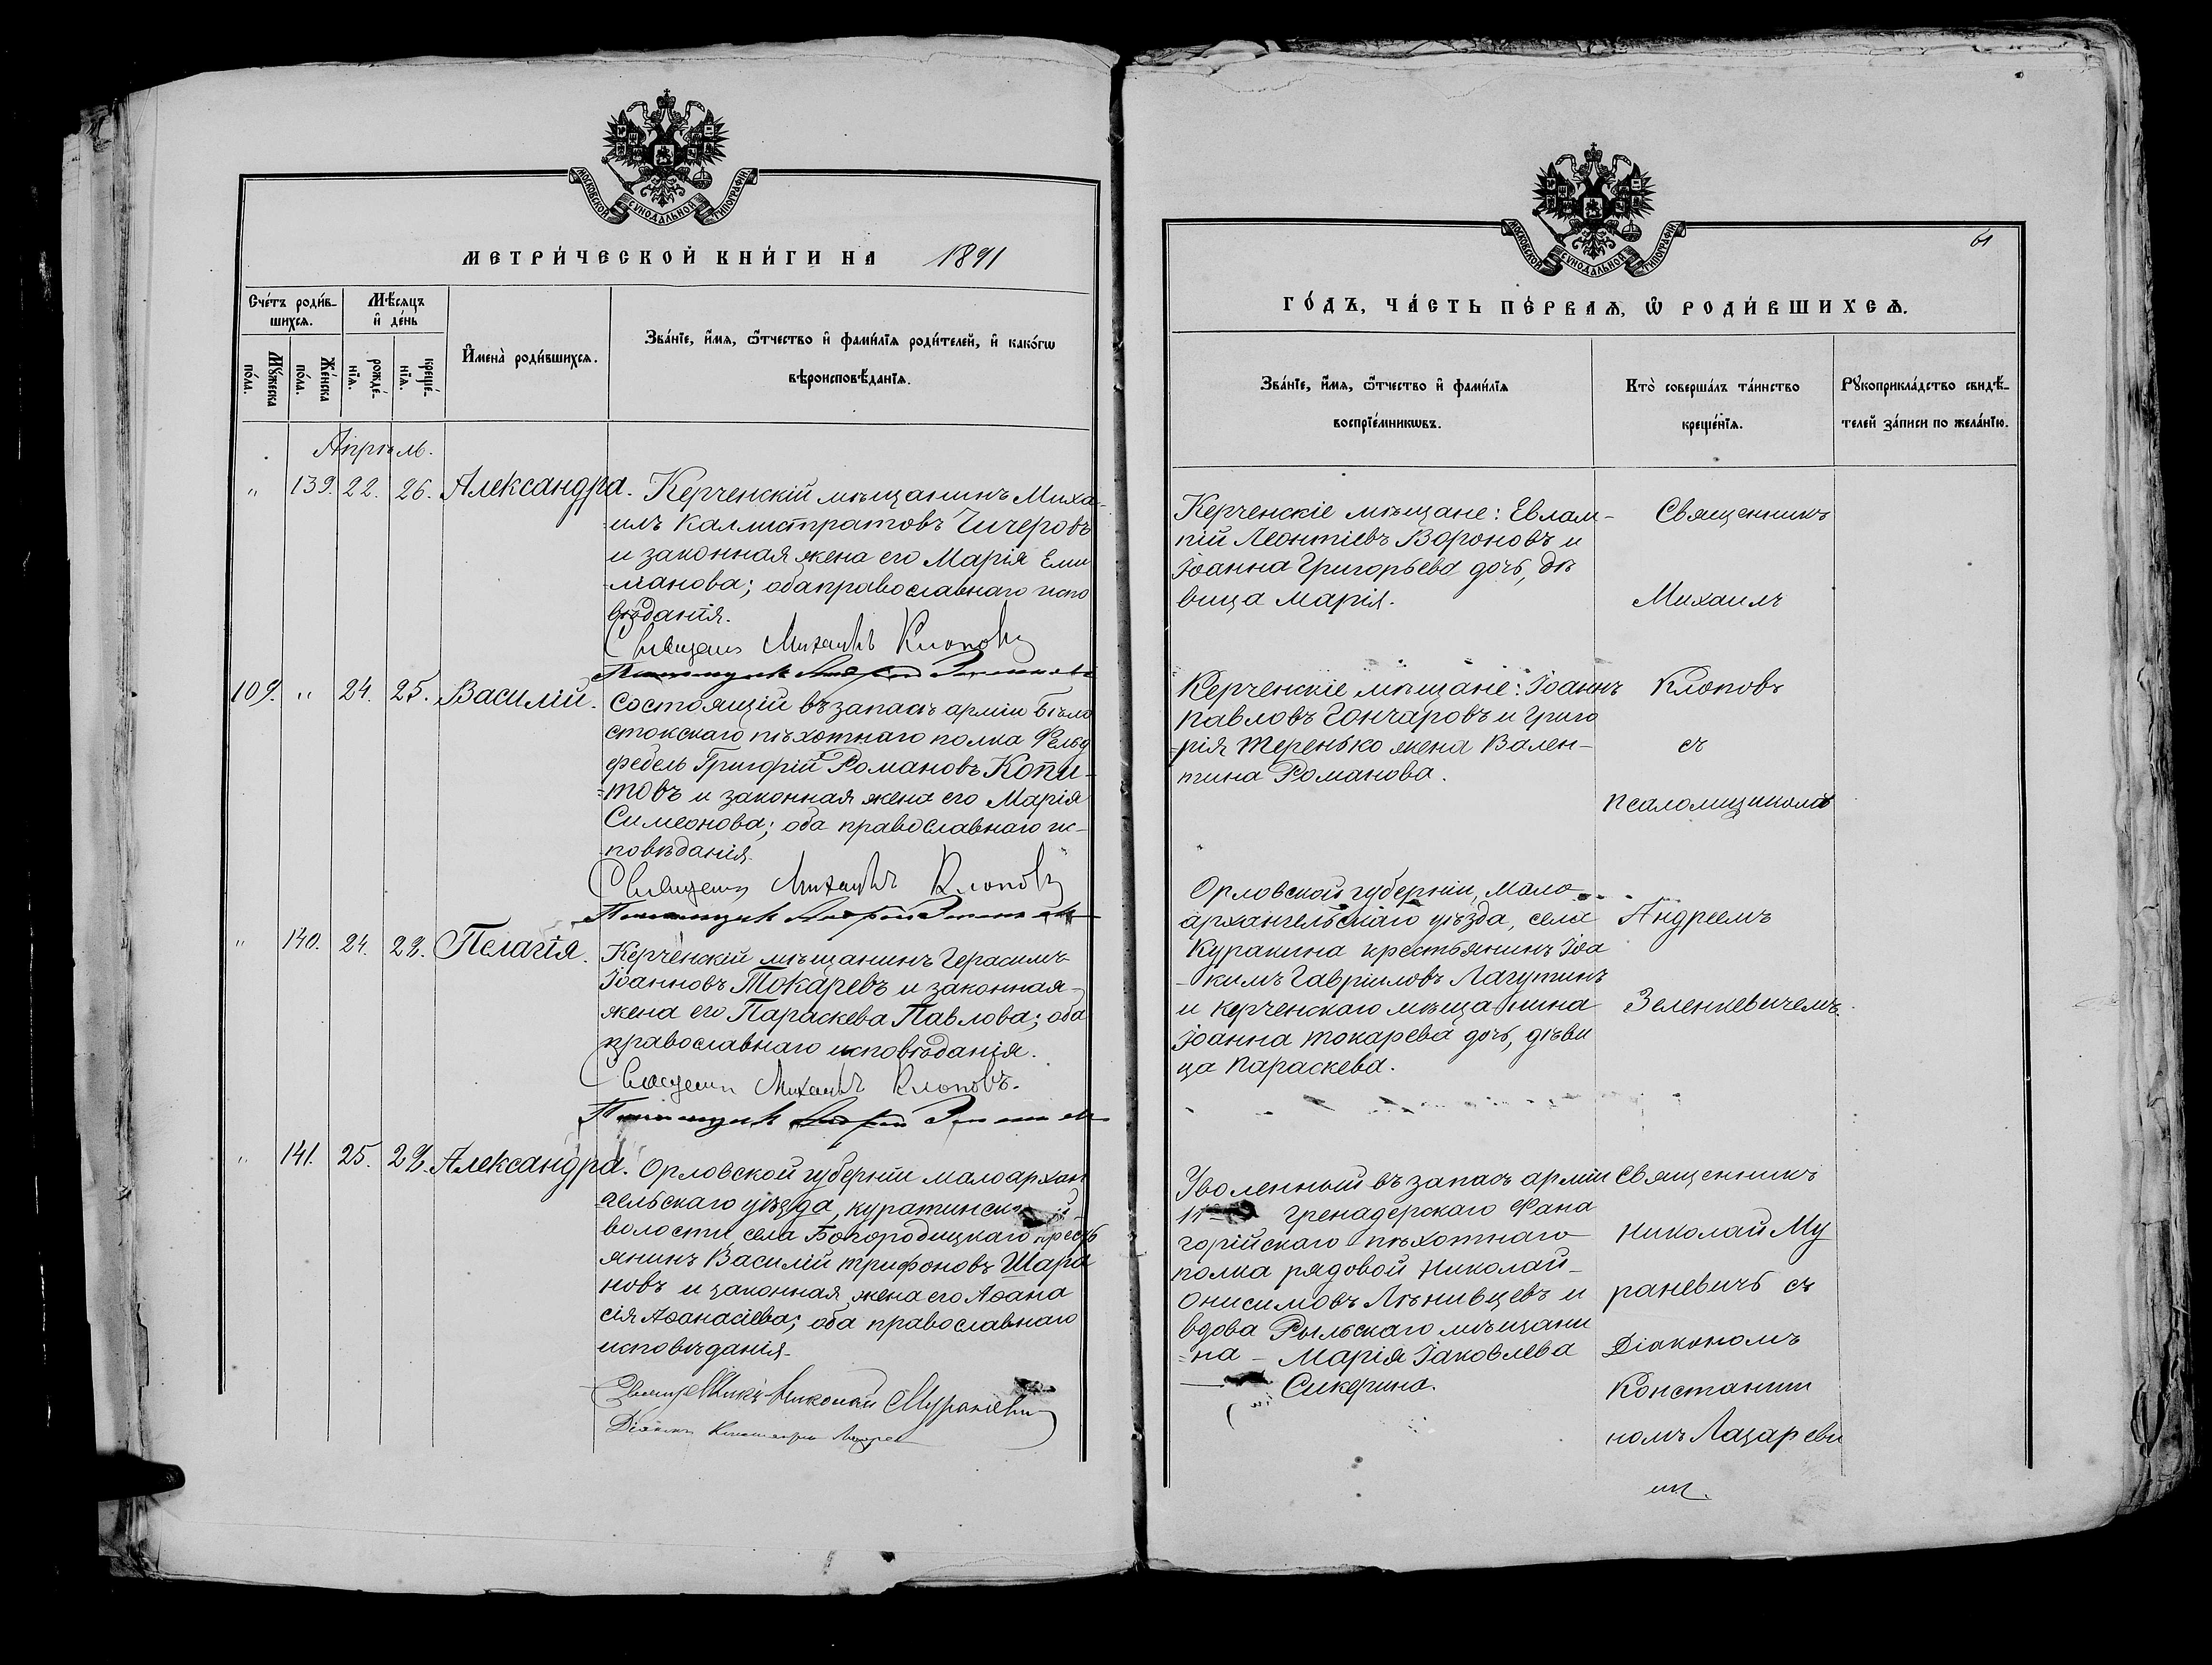 МОСКОВСКОЙ СУНОДАЛЬНОЙ ТИПОГРАФІИ
МЕТРИ́ЧЕСКОЙ КНИ́ГИ НА 1891
Сче́тъ роди́в-
шихсѧ.
Мѣ́сѧцъ
и҆ де́нь
Мꙋ́жеска
по́ла.
Же́нска
по́ла.
рожде́-
нїѧ.
креще́-
нїѧ.
И҆мена̀ роди́вшихсѧ.
Зва́нїе, и҆́мѧ, ѻ҆́тчество и҆ фами́лїѧ роди́телей, и҆ како́гѡ
вѣроисповѣ́данїѧ.
Апрѣль.
" 139. 22. 26. Александра. Керченскій мѣщанинъ Миха-
илъ Каллистратовъ Чичеровъ
и законная жена его Марія Еми
ліанова; оба православнаго испо
вѣданія.
Священ Михаилъ Клоповъ
109. " 24. 25. Василій. Состоящій въ запасѣ арміи Бѣло
стокскаго пѣхотнаго полка Фельд
фебель Григорій Романовъ Копи-
=товъ и законная жена его Марія
Симеонова; оба православнаго ис-
повѣданія.
Священ Михаилъ Клоповъ
" 140. 24. 28. Пелагія. Керченскій мѣщанинъ Герасимъ
Іоанновъ Токаревъ и законная
жена его Параскева Павлова; оба
православнаго исповѣданія.
Священ Михаилъ Клоповъ.
" 141. 25. 28. Александра. Орловской губерніи малоархан
гельскаго уѣзда,
волости, села Богородицкаго крестьь
янинъ Василій Трифоновъ Шара
новъ и законная жена его Аѳана
сія Аѳанасіева; оба православнаго
исповѣданія.
Священникъ Николай Мураневичъ
Діаконъ
МОСКОВСКОЙ СУНОДАЛЬНОЙ ТИПОГРАФІИ
61
ГО́ДЪ, ЧА́СТЬ ПЕ́РВАѦ, Ѡ҆ РОДИ́ВШИХСѦ.
Зва́нїе, и҆́мѧ, ѻ҆́тчество и҆ фами́лїѧ
воспрїе́мникѡвъ.
Кто̀ соверша́лъ та́инство
креще́нїѧ.
Рꙋкоприкла́дство свидѣ́-
телей за́писи по жела́нїю.
Керченскіе мѣщане: Евлам-
пій Леонтіевъ Вороновъ и
Іоанна Григорьева дочь, дѣ
вица Марія.
Керченскіе мѣщане: Іоаннъ
Павловъ Гончаровъ и Григо
-рія Теренько жена Вален-
тина Романова.
Орловской губерніи, Мало
архангельскаго уѣзда, села
Куракина крестьянинъ Іоа
-кимъ Гавриловъ Лагутинъ
и керченскаго мѣщанина
Іоанна Токарева дочь, дѣви
ца Параскева.
Священникъ
Михаилъ
Клоповъ
съ
псаломщикомъ
Андреемъ
Зеленкевичемъ.
Уволенный въ запасъ арміи
гренадерскаго Фана
горійскаго пѣхотнаго
полка рядовой Николай
Онисимовъ Лѣнивцевъ и
вдова Рыльскаго мѣщани
=на - Марія Іаковлева
Сикерина.
Священникъ
Николай Му
раневичъ съ
Діакономъ
Константи
номъ Лазареви